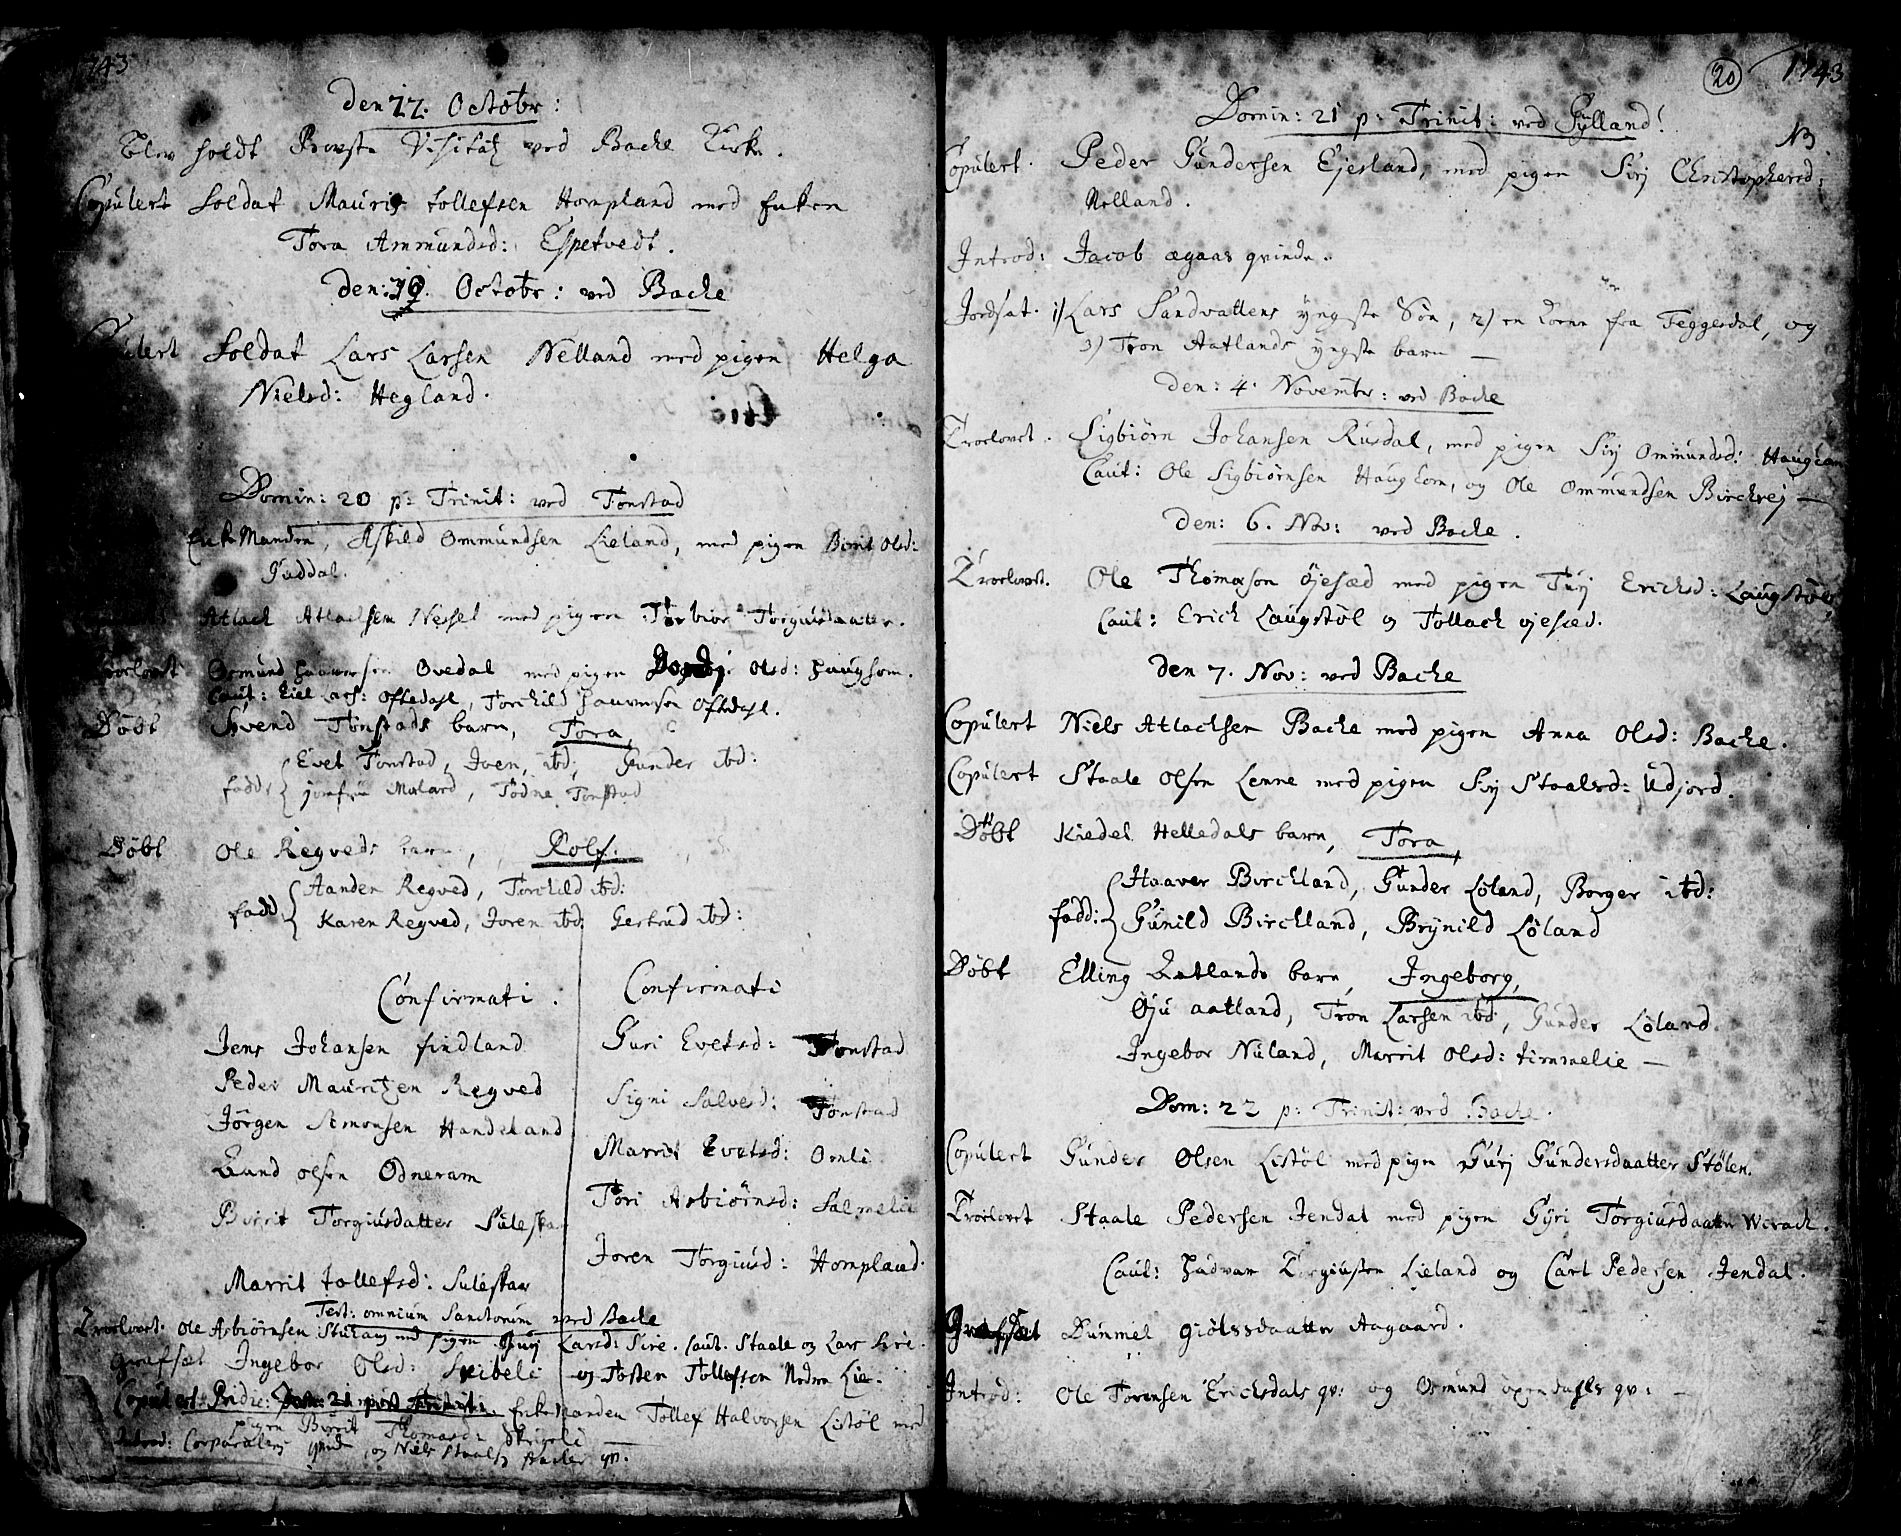 1743
Den 22. Octobr:
Blev holdt Provste Visitatz ved Backe Kirke.
Copulert Soldat Mauris Tollefsen Hompland med Enken
Tora Ammunds: Espetvedt.
Den: 30. Octobr: ved Backe
Copulert Soldat Lars Larsen Nelland med pigen Helga
Nielsd: Hegland.
Domin: 20 p: Trinit: ved Tonstad
Enke Manden, Askild Ommundsen Lieland, med pigen Berit Olsd:
Guddal.
Atlack Atlacksen Nessel med pigen Torbior Torgiusdaatter.
Troelovet Osmund Haaversen Ovedal med pigen Olsd: Haughom.
Caut: Eill Lars: Oftedahl, Torchild Haaversen Oftedahl.
Døbt Svend Tonstads barn, Tora,
Evet Tonstad, Joen, ibd, Gunder ibd:
fadd: jomfru Malard, Tódne Tonstad
Døbt Ole Regveds barn, Rolf.
Aanden Regved, Torchild ibd:
fadd Karen Regved, Joren ibd: Gertrud ibd:
Confirmati.
Jens Johansen findland
Peder Mauritzen Regved
Jörgen Simonsen Handeland
Aund olsen Odneram
Birrit Torgiusdatter Suleskar
Marrit Tollefsd: Suleskar
Confirmati
Guri Evetsd: Tonstad
Signi Salvesd: Tonstad
Marrit Evetsd: Omli
Tori Asbiörnsd: Salmelie
Joren Torgiusd: Hompland.
Fest: omnium Sanctorum ved Backe
Troelovet. Ole Asbiörnsen med pigen Gurj Larsd: Sire. Caut. Staale og Lars Sire.
Grafsæt Ingebor Olsd: Skibeli og Tosten Tollefsen Nedre Lie.
Copulert Pridie: Dom: 21 post Trinit: Enke Manden Tollef Halvorsen Listöl med
pigen Birrit Thomasd: Skrigeli
Introd: Corporalens qvinde, og Niels Staalss Aaeler qv.
20 1743
Domin: 21 p: Trinit: ved Gylland!
NB
Copulert. Peder Gundersen Ejesland, med pigen Sirj Christophersd:
Nelland.
Introd: Jacob ægaas qvinde.
Jordsat. 1) Lars Sandvattens yngste Sön, 2) en Kone fra Teggersdal, og
3) Tron Aatlands yngste barn —
Den: 4. Novembr: ved Backe
Troelovet. Sigbiörn Johansen Rusdal, med pigen Sirj Ommundsd: Haughom
Caut: Ole Sigbiörnsen Haughom, og Ole Ommundsen Birckrej —
Den: 6. Nov: ved Backe.
Troelovet. Ole Thomesen Öjesæd med pigen Turj Erichsd: Laugstöl,
Caut: Erich Laugstöl og Tollach öjesæd.
Den 7. Nov: ved Backe
Copulert Niels Atlachsen Backe med pigen Anna Olsd: Backe.
Copulert Staale Olsen Lenne med pigen Sirj Staalsd: Udjord.
Döbt Kiedel Helledals barn, Tora,
Haaver Birckland, Gunder Löland, Borger ibd:
fadd: Gunild Birckland, Brynild Löland
Döbt Elling Aatlands barn, Ingeborg,
Öju aatland, Tron Larsen ibd, Gunder Löland.
Ingebor Nuland, Marrit Olsd: Timmelie —
Dom: 22 p: Trinit: ved Backe.
Copulert Gunder Olsen Listöl med pigen Gurj Gundersdaatter Stölen.
Troelovet Staale Pedersen Jendal med pigen Gyri Torgiusdaatter Wirach.
Caut: Hadvar Torgiusen Lieland og Carl Pedersen Jendal.
Grafsæt Dunmel Giölssdaatter Aagaard.
Introd: Ole Torensen Erichsdals qv: og Osmund öxendahls qv: —